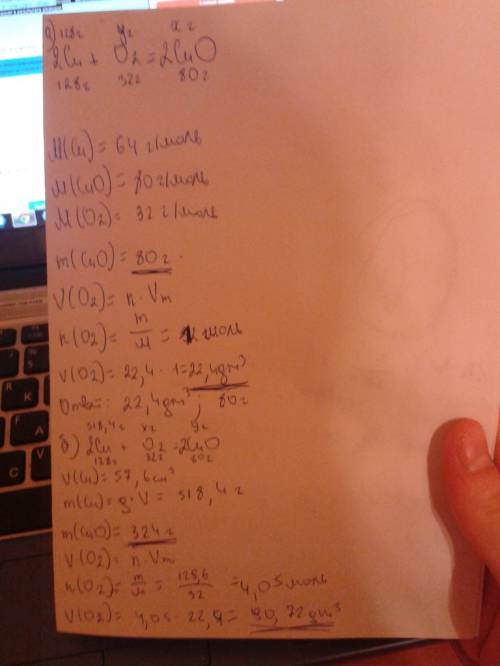 а) 128г yг xг
2Cu + O2 = 2CuO
128г 32г 80г
M(Cu) = 64 г/моль
M(CuO) = 80 г/моль
M(O2) = 32 г/моль
m(CuO) = 80 г.
V(O2) = n · Vm
n(O2) = m/M = 1 моль
V(O2) = 22,4 · 1 = 22,4 дm³
Ответ: 22,4 дm³; 80г
518,4г xг yг
б) 2Cu + O2 = 2CuO
128г 32г 80г
V(Cu) = 57,6 cm³
m(Cu) = g · V = 518,4 г
m(CuO) = 324 г
V(O2) = n · Vm
n(O2) = m/M = 128,6/32 = 4,05 моль
V(O2) = 4,05 · 22,4 = 90,72 дm³